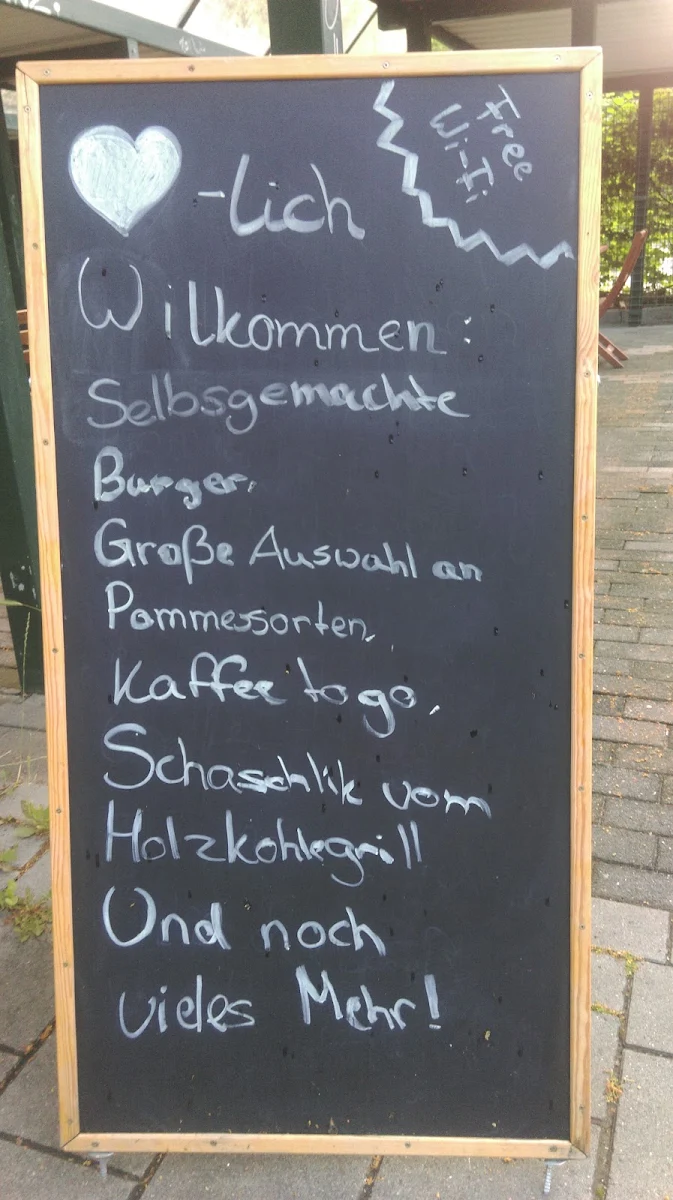 Free
Wi-Fi
♥-lich
Willkommen:
Selbsgemachte
Burger,
Große Auswahl an
Pommessorten,
Kaffee to go,
Schaschlik vom
Holzkohlegrill
Und noch
vieles Mehr!